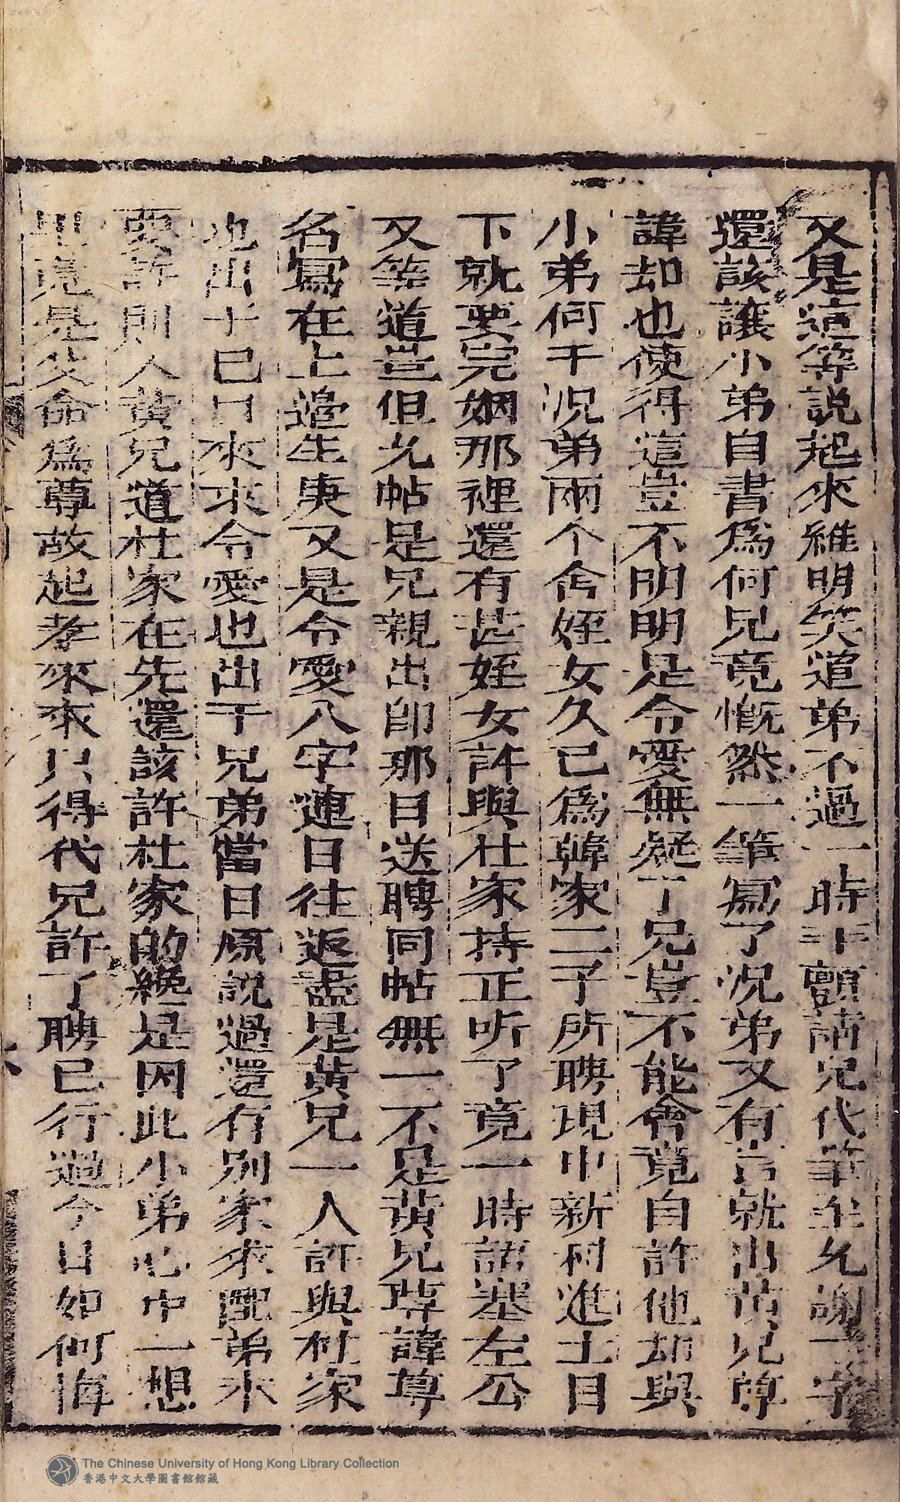 又是這等說起來維明笑道弟不過一時手顫請兄代筆至允謝二字
還該讓小弟自書為何兄竟慨然一筆寫了况弟又有言就出黃兄尊
諱却也使得這豈不明明是令愛無疑了兄豈不能會竟自許他却與
小弟何干况弟兩个舍姪女久已為韓家二子所聘現中新科進士目
下就要完姻那裡還有甚姪女許與杜家持正听了竟一時語塞左公
又笑道豈但允帖是兄親出即那日送聘同帖無一不是黃兄尊諱尊
名寫在上邉生庚又是令愛八字連日往返盡是黃兄一人許與杜家
也出于巳口來求令愛也出于兄弟當日原說過還有别家求配弟不
要許則人黃兄道杜家在先還該許杜家的纔是因此小弟心中一想
畢竟是父命為尊故起孝來來只得代兄許了聘已行過今日如何悔
The Chinese University of Hong Kong Library Collection
香港中文大學圖書館館藏